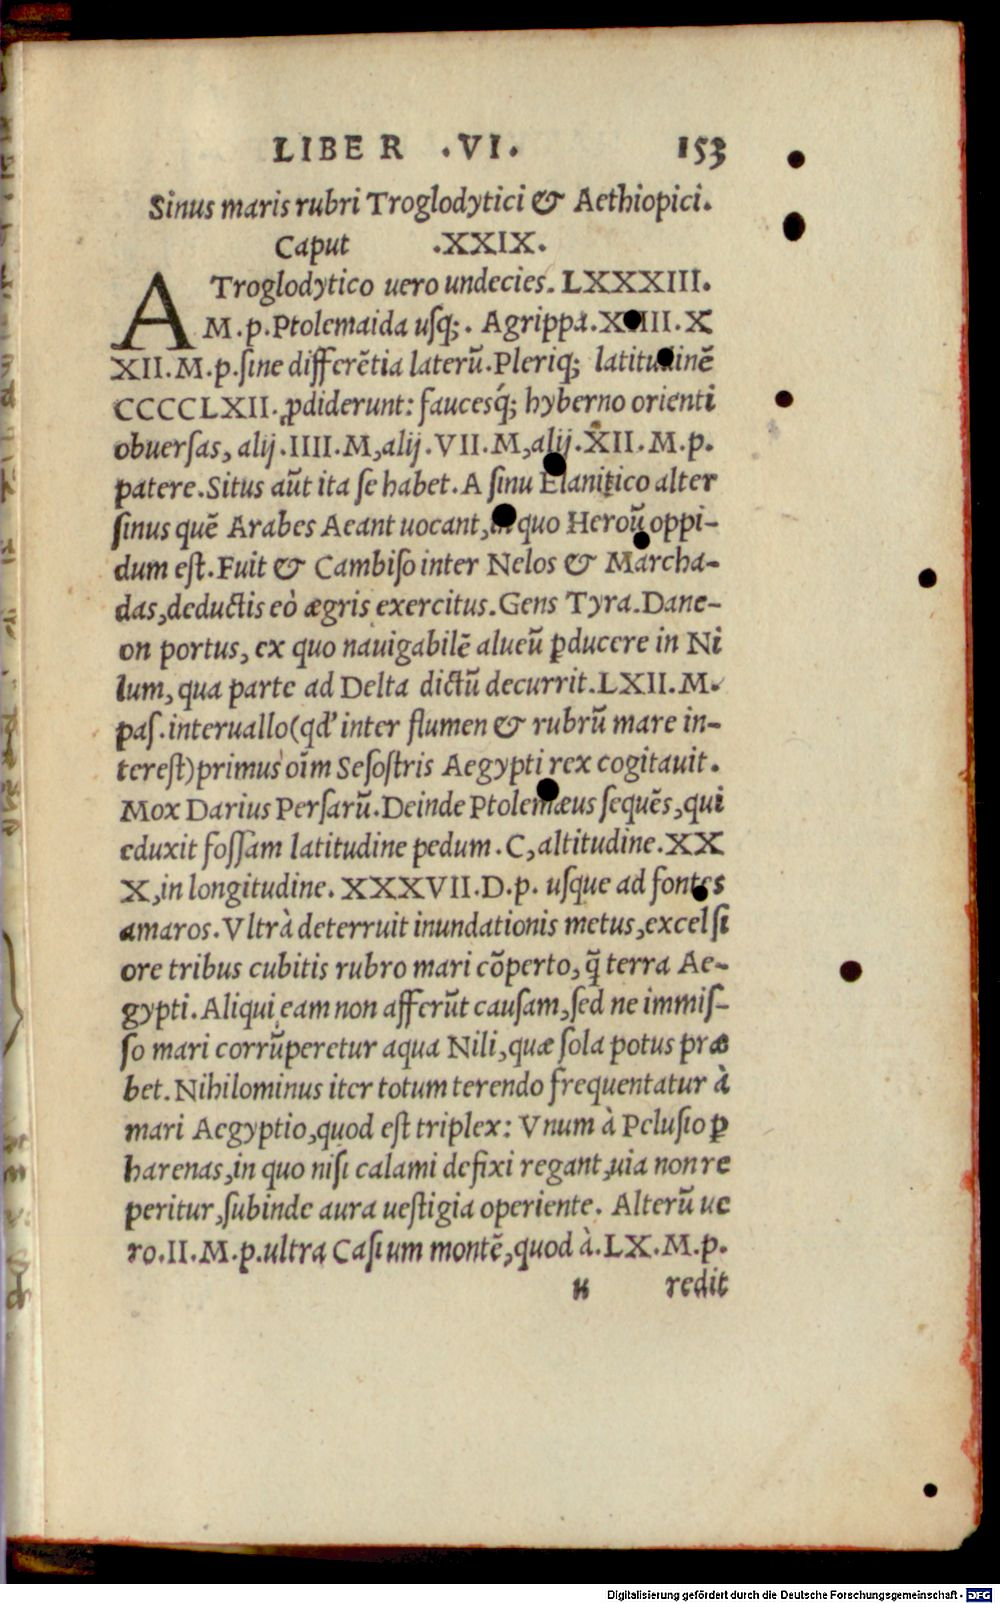 LIBER .VI. 153
Sinus maris rubri Troglodytici & Aethiopici.
Caput .XXIX.
A Troglodytico uero undecies. LXXXIII.
M.p.Ptolemaida usq;. Agrippa. X
XII.M.p.sine differētia laterū.Pleriq; latitudinē
CCCCLXII.ꝓdiderunt: faucesq́; hyberno orienti
obuersas, alij.IIII.M,alij.VII.M,alij.XII.M.p.
patere.Situs aūt ita se habet.A sinu Elanitico alter
sinus quē Arabes Aeant uocant,in quo Heroū oppi-
dum est.Fuit & Cambiso inter Nelos & Marcha-
das,deductis eò ægris exercitus.Gens Tyra.Dane-
on portus, ex quo nauigabilē alueū ꝑducere in Ni
lum, qua parte ad Delta dictū decurrit.LXII.M.
pas.interuallo(qd' inter flumen & rubrū mare in-
terest)primus oīm Sesostris Aegypti rex cogitauit.
Mox Darius Persarū.Deinde Ptolemæus sequēs,qui
eduxit fossam latitudine pedum.C,altitudine.XX
X,in longitudine. XXXVII.D.p. usque ad fontes
amaros.Vltrà deterruit inundationis metus,excelsi
ore tribus cubitis rubro mari cōperto, q̄ terra Ae-
gypti.Aliqui eam non afferūt causam,sed ne immis-
so mari corrūperetur aqua Nili,quæ sola potus præ
bet.Nihilominus iter totum terendo frequentatur à
mari Aegyptio,quod est triplex: Vnum à Pelusio ꝑ
harenas,in quo nisi calami defixi regant,uia non re
peritur,subinde aura uestigia operiente. Alterū ue
ro.II.M.p.ultra Casium montē,quod à.LX.M.p.
u redit
Digitalisierung gefördert durch die Deutsche Forschungsgemeinschaft - DFG